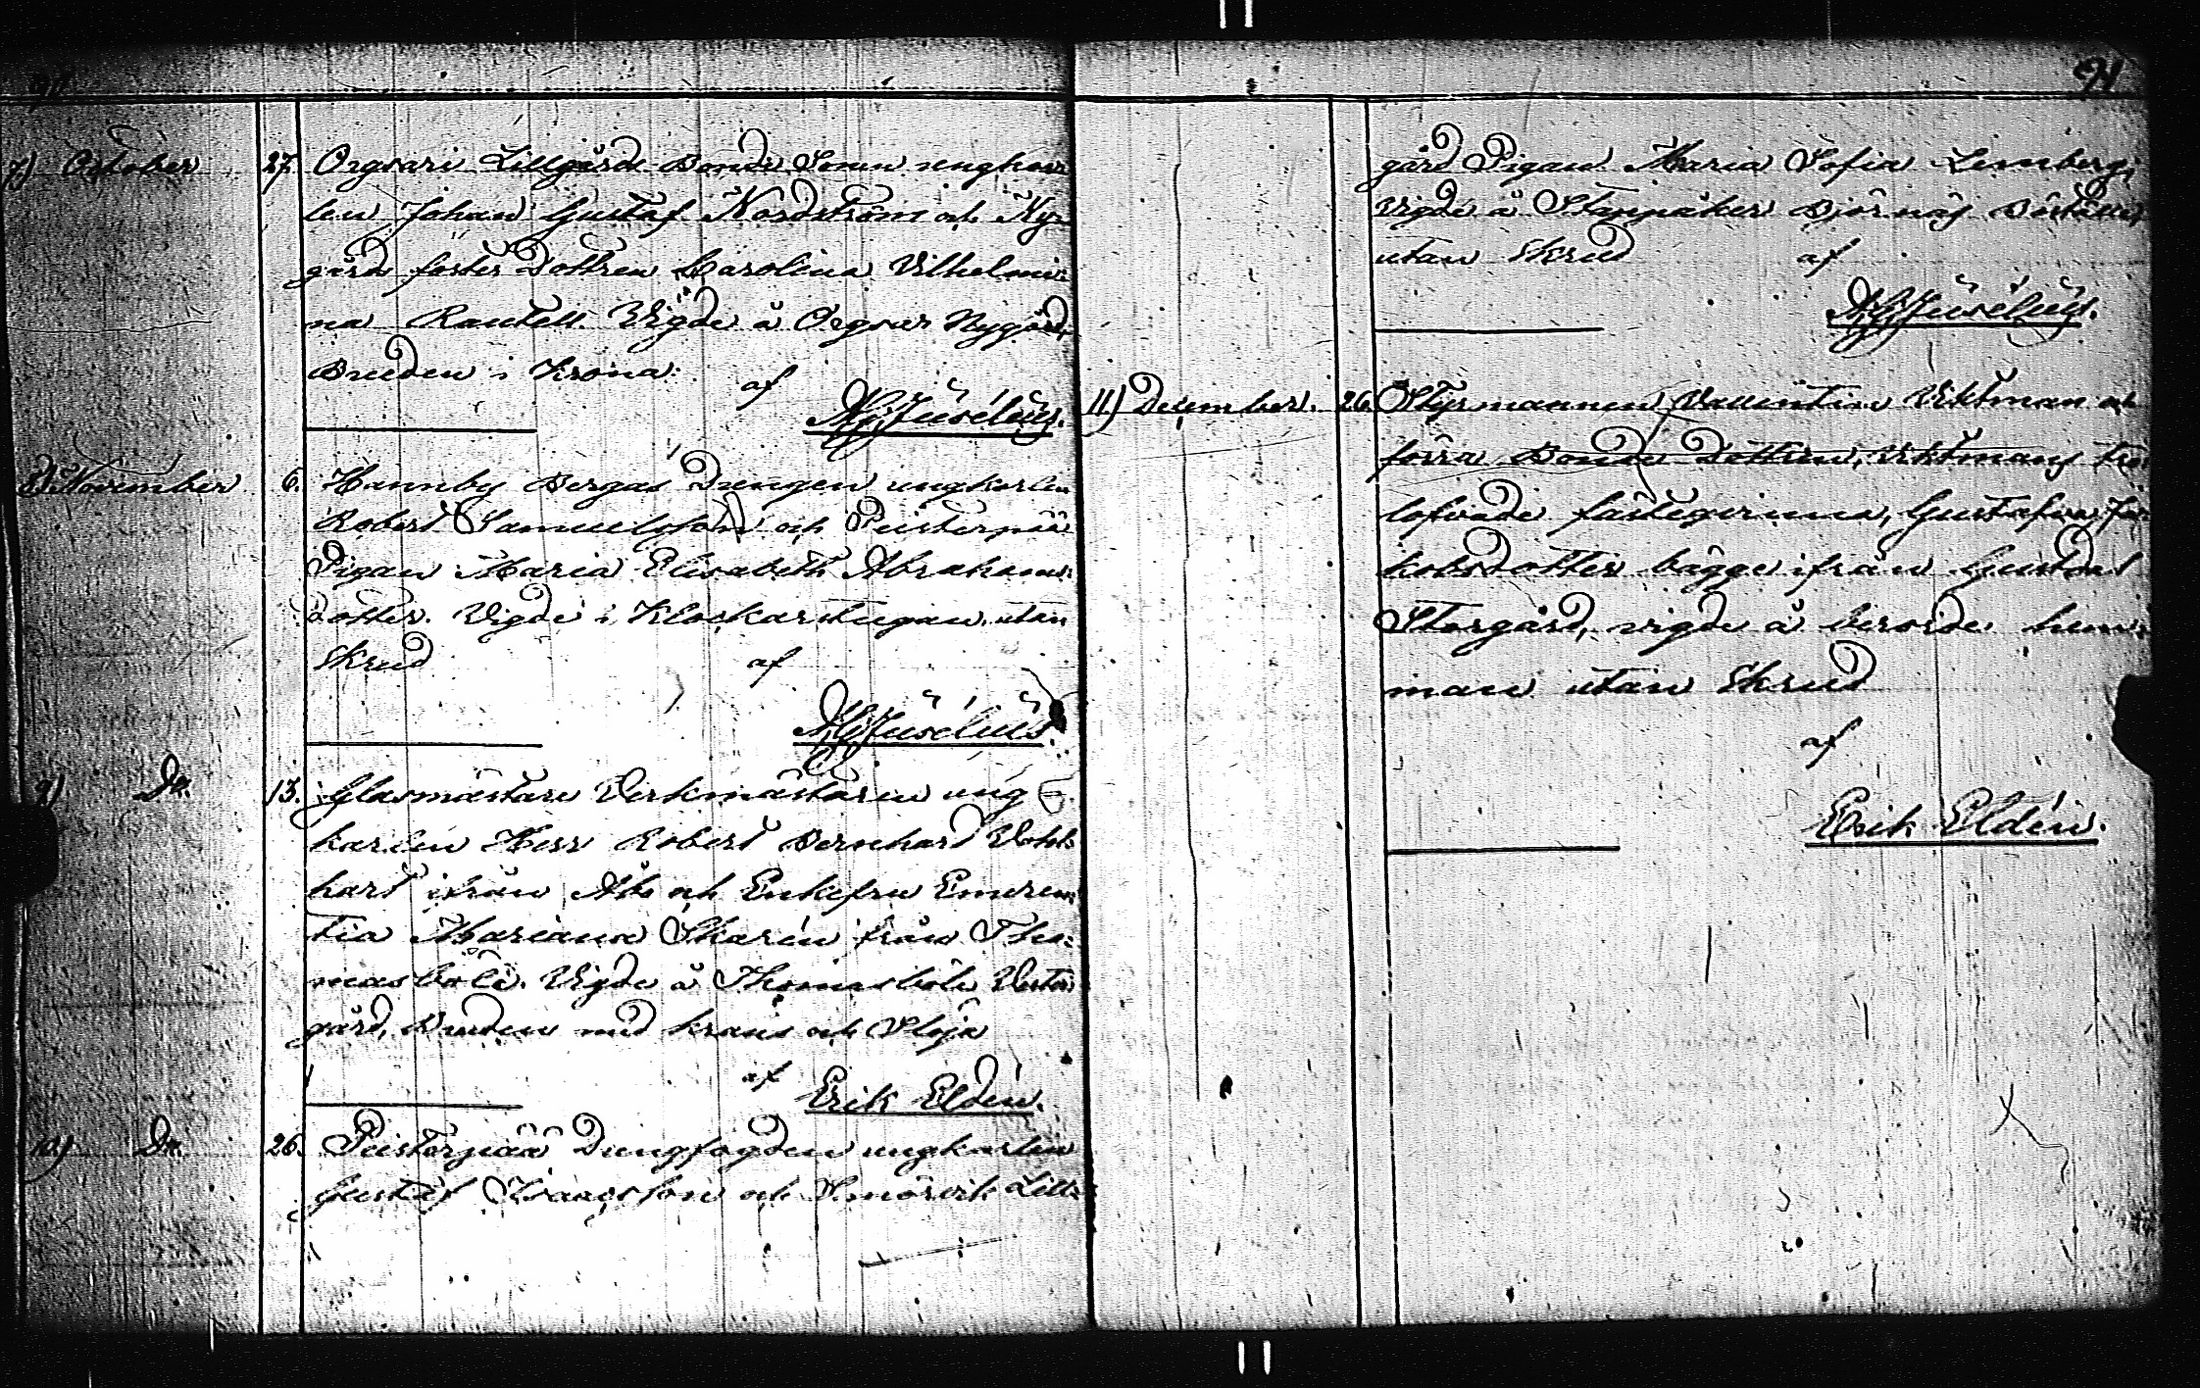 90
7.) October 27. Orgsari Lillgårds Bonde Sonen ungkar=
len Johan Gustaf Nordström och Ny=
gård foster Dottren Carolina Vilhelmi=
na Rantell. Vigde å Orgsar Nygård,
Bruden i Krona.
af
Juselius.
8) November 6. Hannby Bergas Drengen ungkarlen
Robert Samuelsson och Peisterpää
Pigan Maria Elisabeth Abrahams=
dotter. Vigde i Klockarstugan utan
Skrud af
Juselius.
9) Do. 13. Glasmästare Verkmästaren ung=
karlen Herr Robert Bernhard
hart ifrån Åbo och Enkefru Emeren=
tia Mariana Skarin från Tho=
masböle. Vigde å Thomasböle Vester=
gård, Bruden med krans och Slöja
af
Erik Eldén.
10) Do. 26. Peisterpää Drengfogden ungkarlen
Gustaf Isaacsson och Smörvik Lill=
91
gård Pigan Maria Sofia Lemberg,
Vigde å Stappåker Björnäs
utan Skrud af
Juselius.
11) December. 26. Styrmannen Vallentin Viktman och
förra Bonde Dottren, Viktmans tro=
lofvade fästeqvinna, Gustafva Ja=
kobsdotter bägge ifrån Gustdal
Storgård, vigde å berörde hem=
man utan Skrud
af
Erik Eldén.